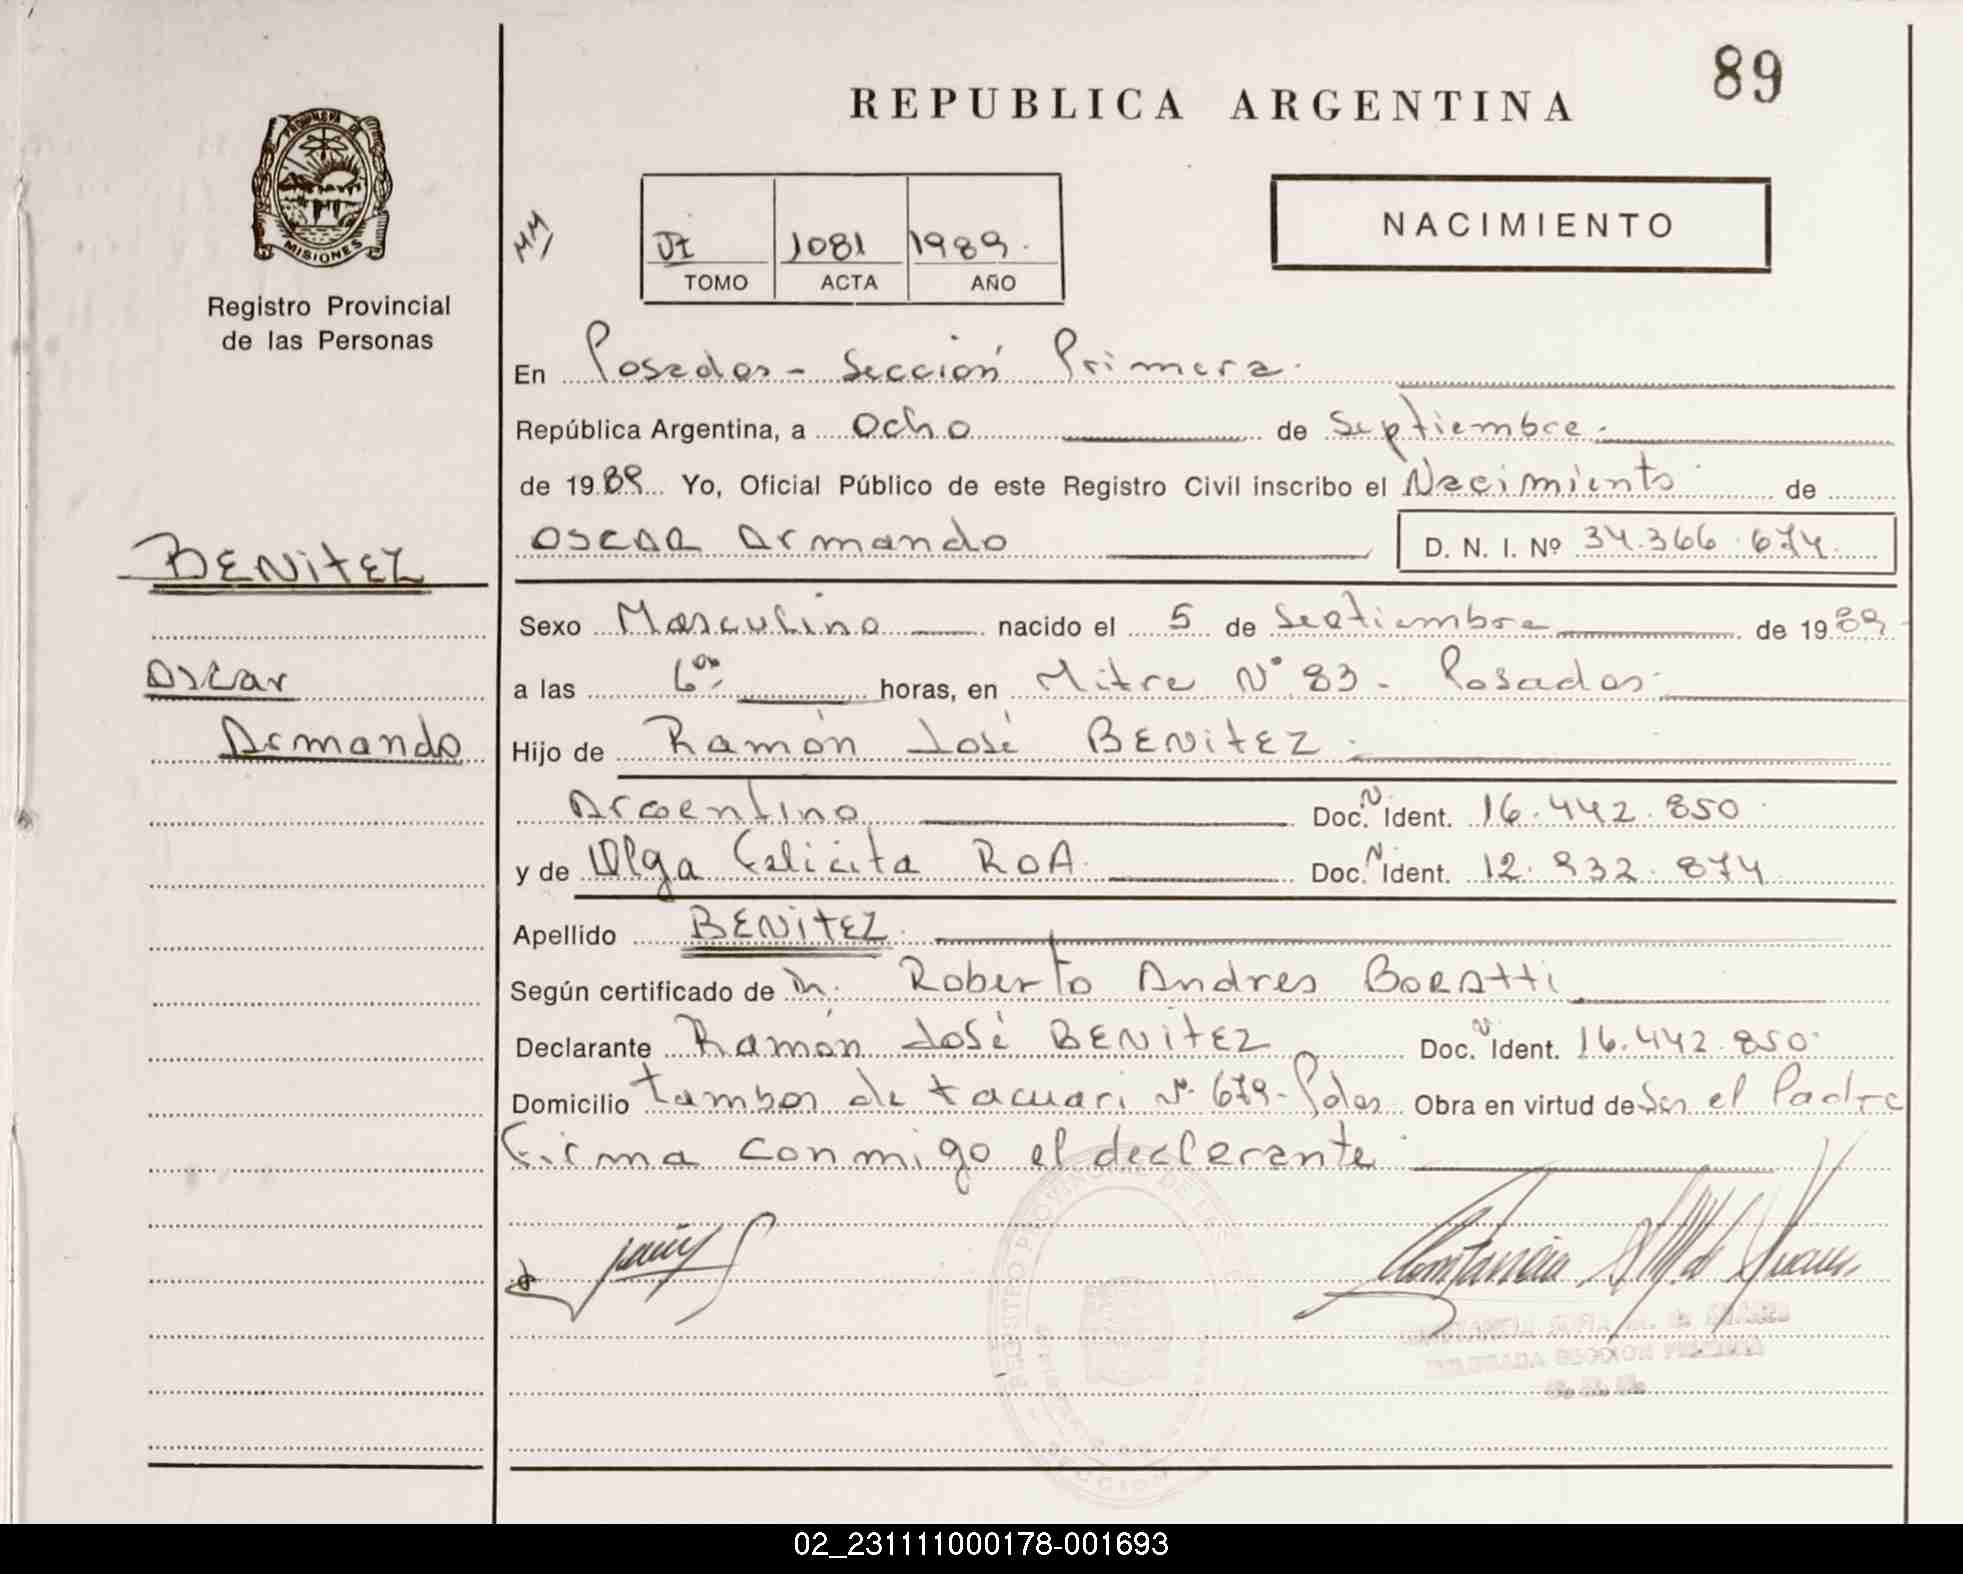 89
REPUBLICA ARGENTINA
PROVINCIA DE
MISIONES
Registro Provincial
de las Personas
MM
VI 1081 1989.
TOMO ACTA AÑO
NACIMIENTO
En Posadas - Sección Primera.
República Argentina, a Ocho de Septiembre.
de 1989 Yo, Oficial Público de este Registro Civil inscribo el Nacimiento de
OSCAR Armando D. N. I. Nº 34.366.674
BENITEZ
Oscar
Armando
Sexo Masculino nacido el 5 de Septiembre de 1989
a las 6 horas, en Mitre Nº 83 - Posadas.
Hijo de Ramón José BENITEZ.
Argentino Doc. N Ident. 16.442.850
y de Olga Felicita ROA. Doc. N Ident. 12.932.874
Apellido BENITEZ.
Según certificado de Dr. Roberto Andres BORATTI
Declarante Ramón José BENITEZ Doc. N Ident. 16.442.850.
Domicilio tambor de tacuari Nº 679 - Pdas Obra en virtud de Ser el Padre
Firma conmigo el declarante.
REGISTRO PROVINCIAL DE LAS
SECCION
DELEGADA SECCION PRIMERA
02_231111000178-001693